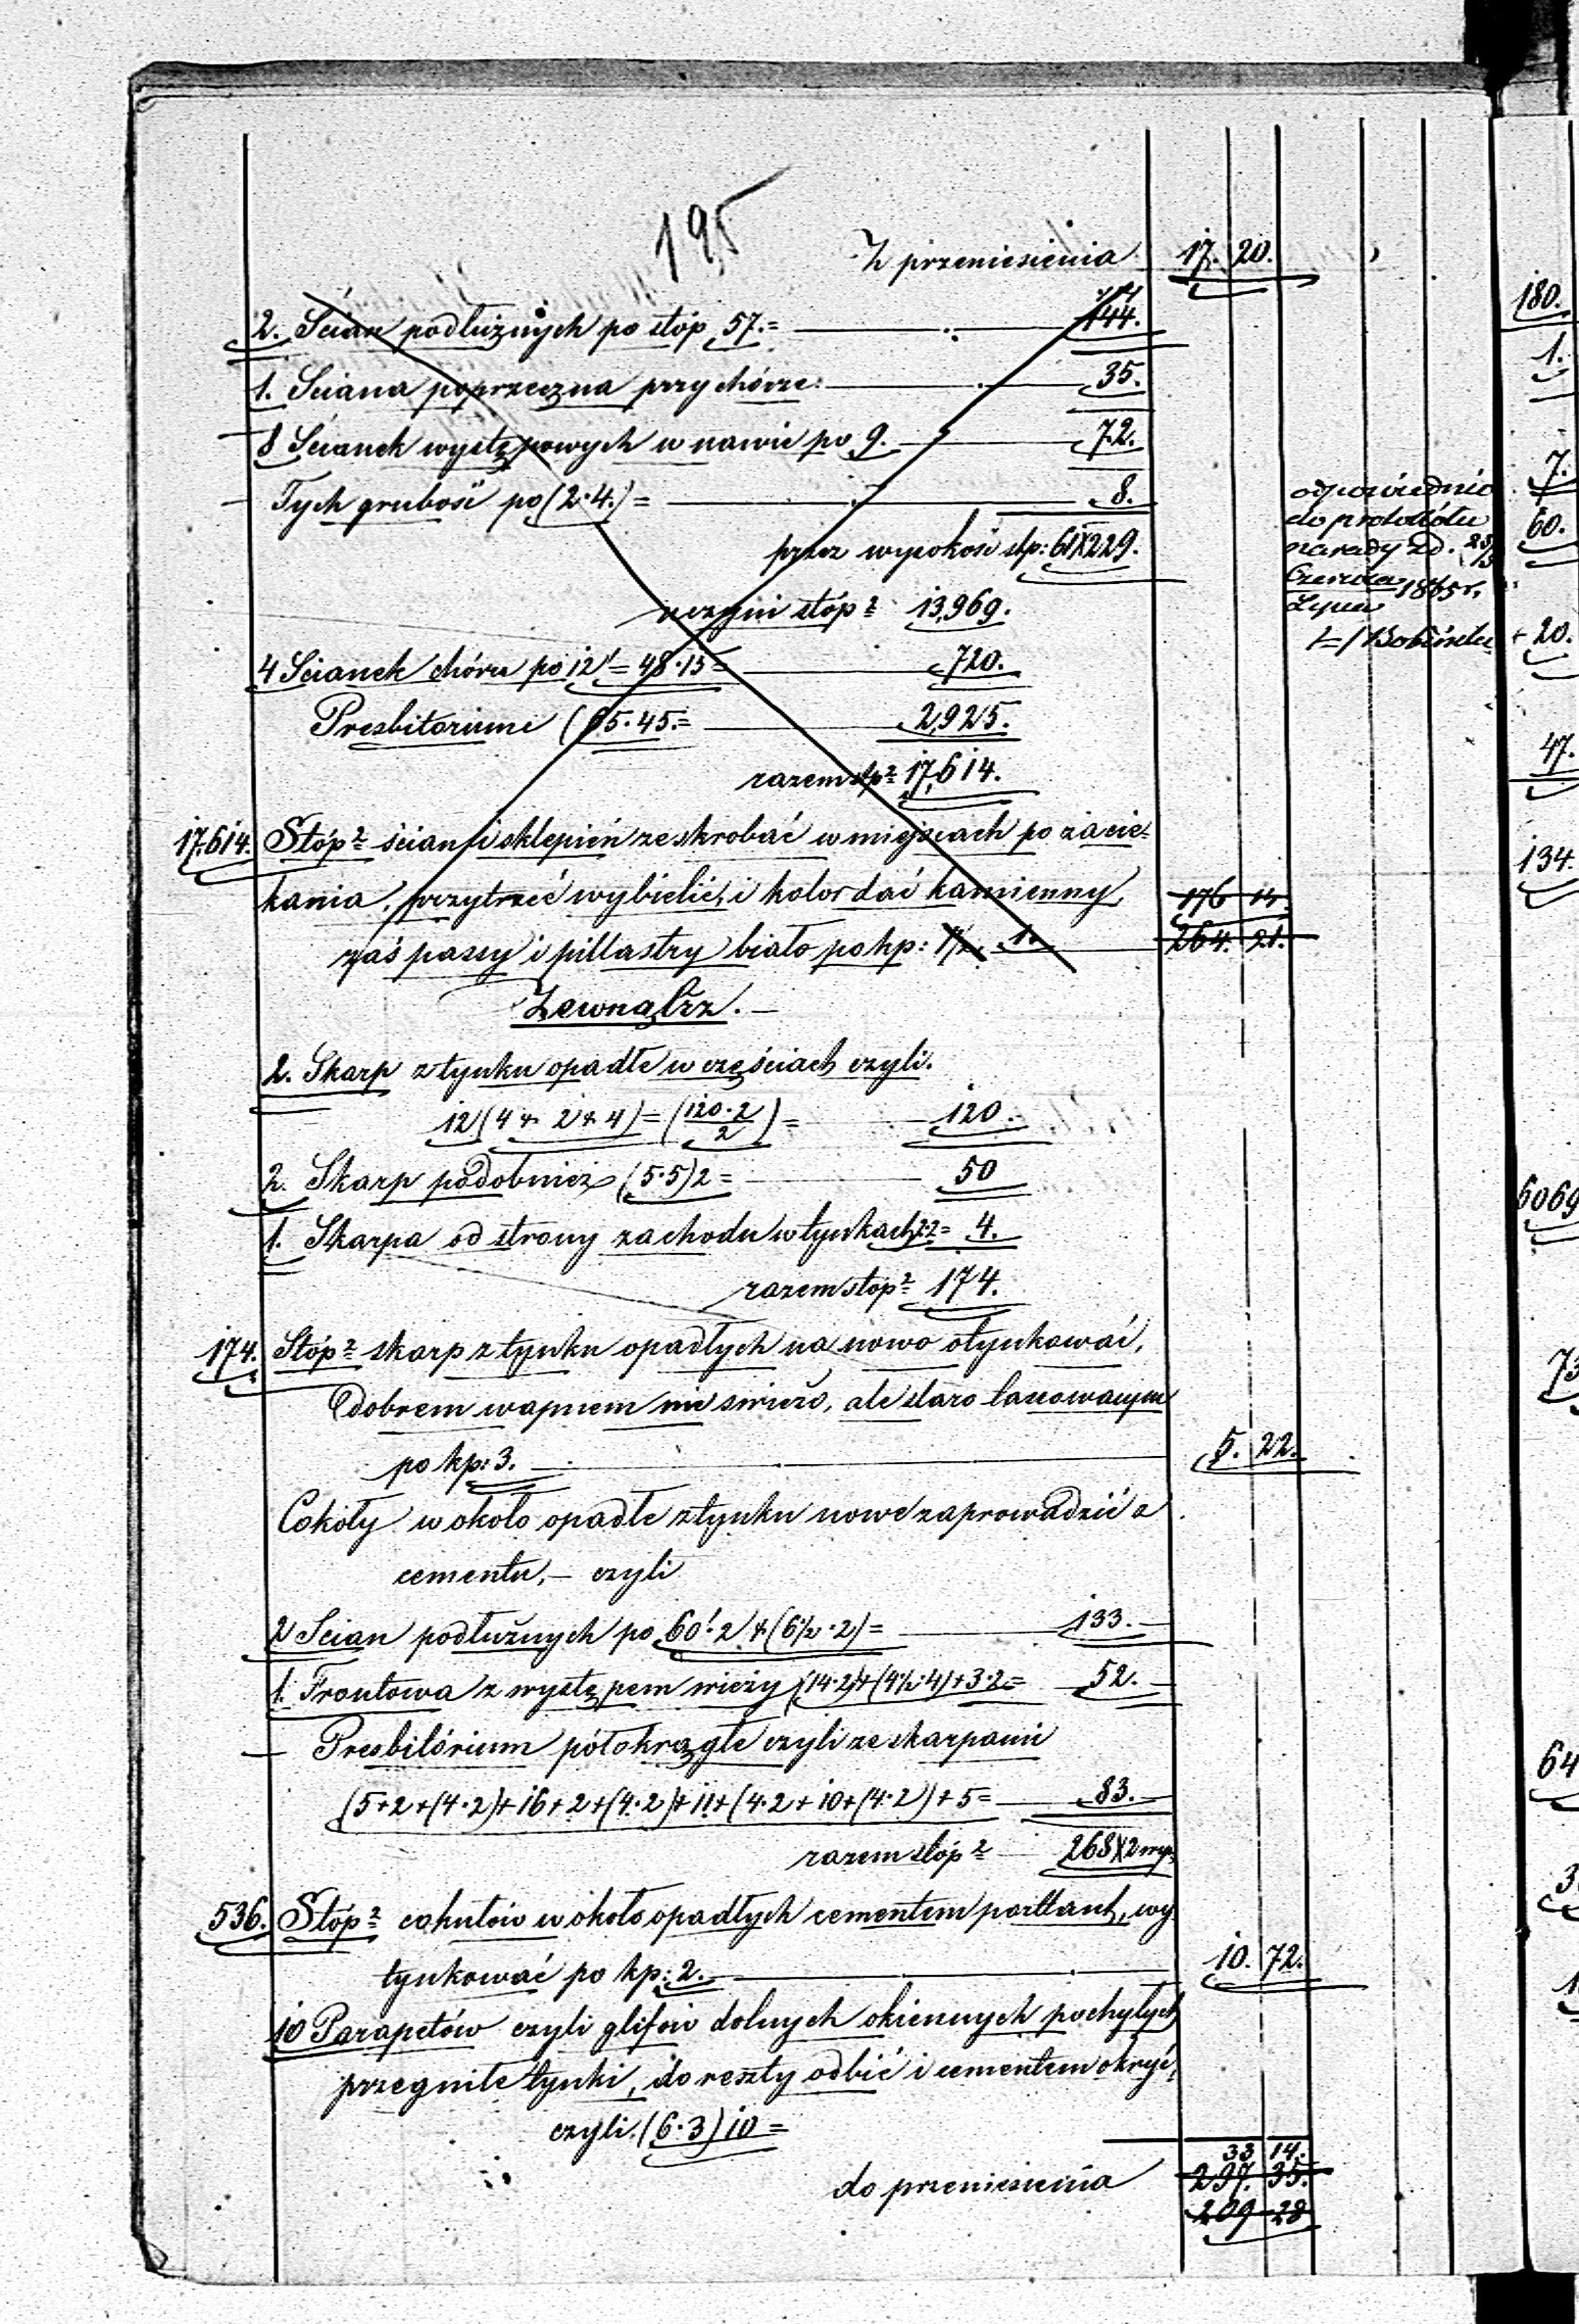 195
Z przeniesienia 17. 20.
2. Ścian podłużnych po stóp 57.= 144.
1. Sciana poprzeczna przy chórze: 35.
8 Ścianek występowych w nawie po 9. 72.
Tych grubość po (2·4.)= 8.
przez wysokość stp: 61X229.
uczyni stóp² 13,969.
4 Scianek chóru po 12'= 48·15= 720.
Presbitorium (65·45.= 2,925.
razem stp² 17,614.
17.614. Stóp² ścian i sklepień zeskrobać w miejscach po zacie-
kania, przytrzeć wybielić, i kolor dać kamienny, 176 14.
zaś passy i pillastry biało po kp: 1½ 1. 264. 21.
odpowiednio
do protokółu
narady z d.
Czerwca
Lipca 1865 r.
Zewnątrz.
2. Skarp z tynku opadłe w częściach czyli.
12(4+2+4)=(120·2/2)= 120.
2. Skarp podobnież (5·5)2= 50
1. Skarpa od strony zachodu w tynkach 2·2= 4.
razem stop² 174.
174. Stóp² skarp z tynku opadłych na nowo otynkować,
dobrem wapnem nie swieżo, ale staro lasowanym
po kp: 3. 5. 22.
Cokoły wokoło opadłe z tynku nowe zaprowadzić z
cementu,– czyli
2 Scian podłużnych po 60'·2+(6½·2)= 133.
1. Frontowa z występem wieży (14·2)+(4½·4)+3·2= 52.
Presbitórium półokrągłe czyli ze skarpami
(5+2+(4·2)+16+2+(4·2)+11+(4·2+10+(4·2)+5= 83.
razem stóp² 268X2 wys.
536. Stóp² cokułów wokoło opadłych cementem portland, wy
tynkować po kp: 2. 10. 72.
10 Parapetów czyli glifów dolnych okiennych pochyłych
przegniłe tynki, do reszty odbić i cementem okryć,
czyli (6·3)10=
33 14.
do przeniesienia 297. 35.
209 28
180.
1.
7.
60.
+ 20.
47.
134.
6069
73
64